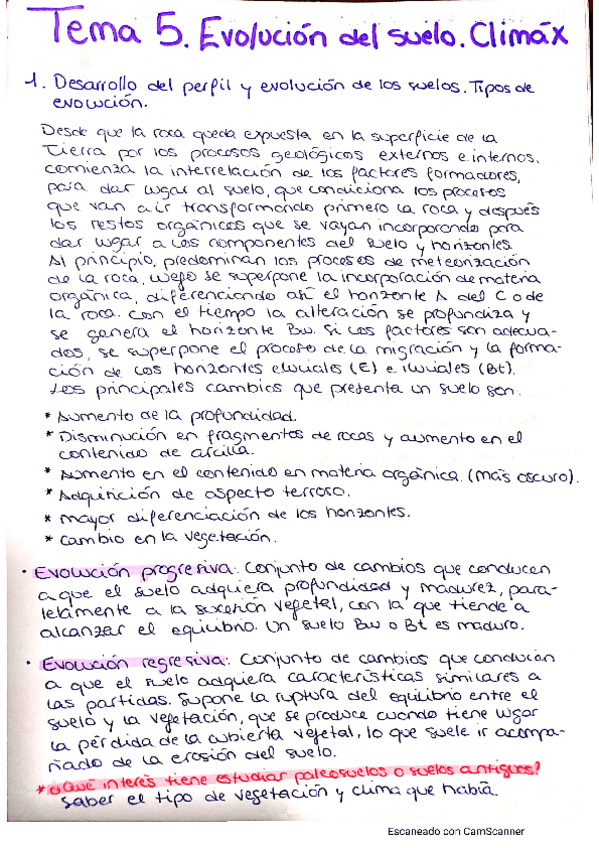 Tema 5. Evolución del suelo. Climáx
1. Desarrollo del perfil y evolución de los suelos. Tipos de
evolución.
Desde que la roca queda expuesta en la superficie de la
Tierra por los procesos geológicos externos e internos,
comienza la interrelación de los factores formadores,
para dar lugar al suelo, que condiciona los procesos
que van a ir transformando primero la roca y después
los restos orgánicos que se vayan incorporando para
dar lugar a los componentes del suelo y horizontes.
Al principio, predominan los procesos de meteorización
de la roca, luego se superpone la incorporación de materia
orgánica, diferenciando así el horizonte A del C o de
la roca. Con el tiempo la alteración se profundiza y
se genera el horizonte Bw. Si los factores son adecua-
dos, se superpone el proceso de la migración y la forma-
ción de los horizontes eluviales (E) e iluviales (Bt).
Los principales cambios que presenta un suelo son:
* Aumento de la profundidad.
* Disminución en fragmentos de rocas y aumento en el
contenido de arcilla.
* Aumento en el contenido en materia orgánica. (más oscuro).
* Adquisición de aspecto terroso.
* Mayor diferenciación de los horizontes.
* Cambio en la vegetación.
· Evolución progresiva: Conjunto de cambios que conducen
a que el suelo adquiera profundidad y madurez, para-
lelamente a la sucesión vegetal, con la que tiende a
alcanzar el equilibrio. Un suelo Bw o Bt es maduro.
· Evolución regresiva: Conjunto de cambios que conducen
a que el suelo adquiera características similares a
las partidas. Supone la ruptura del equilibrio entre el
suelo y la vegetación, que se produce cuando tiene lugar
la pérdida de la cubierta vegetal, lo que suele ir acompa-
ñado de la erosión del suelo.
* ¿Qué interés tiene estudiar paleosuelos o suelos antiguos?
Saber el tipo de vegetación y clima que había.
Escaneado con CamScanner